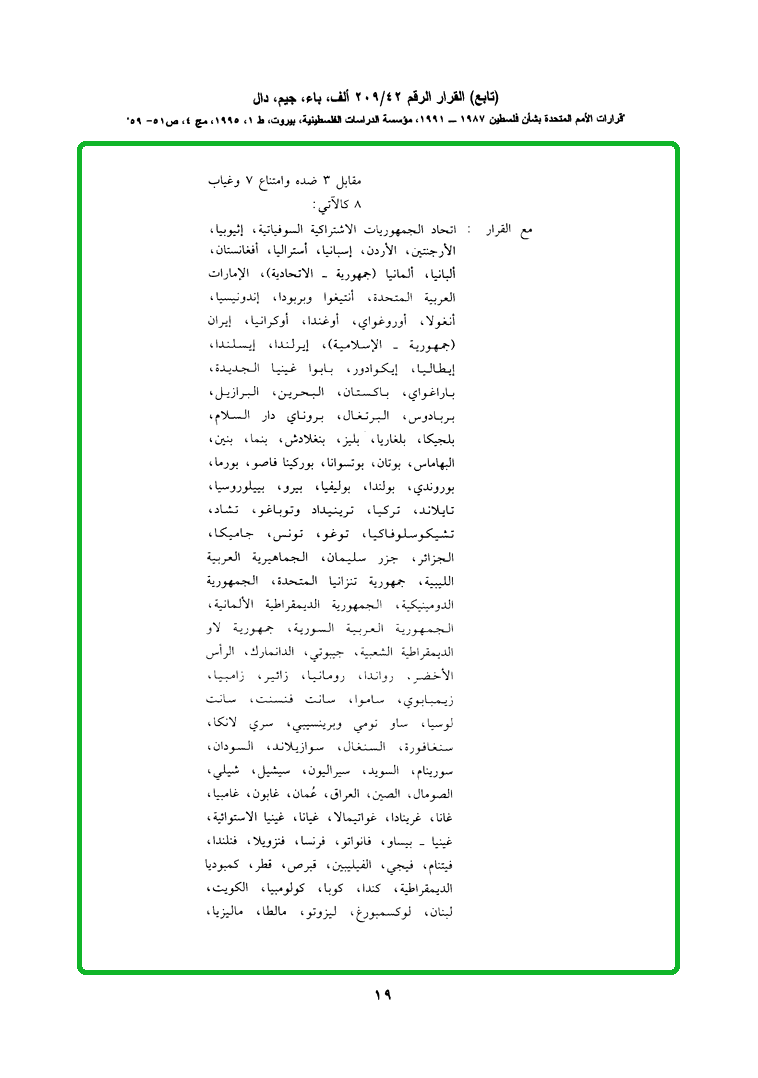 (تابع) القرار الرقم ٢٠٩/٤٢ ألف، باء، جيم، دال
"قرارات الأمم المتحدة بشأن فلسطين ١٩٨٧ ــ ١٩٩١، مؤسسة الدراسات الفلسطينية، بيروت، ط ١، ١٩٩٥، مج ٤، ص٥١- ٥٩"
مقابل ٣ ضده وامتناع ٧ وغياب
٨ كالآتي:
مع القرار : اتحاد الجمهوريات الاشتراكية السوفياتية، إثيوبيا،
الأرجنتين، الأردن، إسبانيا، أستراليا، أفغانستان،
ألبانيا، ألمانيا (جمهورية ـ الاتحادية)، الإمارات
العربية المتحدة، أنتيغوا وبربودا، إندونيسيا،
أنغولا، أوروغواي، أوغندا، أوكرانيا، إيران
(جمهورية ـ الإسلامية)، إيرلندا، إيسلندا،
إيطاليا، إيكوادور، بابوا غينيا الجديدة،
باراغواي، باكستان، البحرين، البرازيل،
بربادوس، البرتغال، بروناي دار السلام،
بلجيكا، بلغاريا، بليز، بنغلادش، بنما، بنين،
البهاماس، بوتان، بوتسوانا، بوركينا فاصو، بورما،
بوروندي، بولندا، بوليفيا، بيرو، بييلوروسيا،
تايلاند، تركيا، ترينيداد وتوباغو، تشاد،
تشيكوسلوفاكيا، توغو، تونس، جاميكا،
الجزائر، جزر سليمان، الجماهيرية العربية
الليبية، جمهورية تنزانيا المتحدة، الجمهورية
الدومينيكية، الجمهورية الديمقراطية الألمانية،
الجمهورية العربية السورية، جمهورية لاو
الديمقراطية الشعبية، جيبوتي، الدانمارك، الرأس
الأخضر، رواندا، رومانيا، زائير، زامبيا،
زيمبابوي، ساموا، سانت فنسنت، سانت
لوسيا، ساو تومي وبرينسيبي، سري لانكا،
سنغافورة، السنغال، سوازيلاند، السودان،
سورينام، السويد، سيراليون، سيشيل، شيلي،
الصومال، الصين، العراق، عُمان، غابون، غامبيا،
غانا، غرينادا، غواتيمالا، غيانا، غينيا الاستوائية،
غينيا ـ بيساو، فانواتو، فرنسا، فنزويلا، فنلندا،
فيتنام، فيجي، الفيليبين، قبرص، قطر، كمبوديا
الديمقراطية، كندا، كوبا، كولومبيا، الكويت،
لبنان، لوكسمبورغ، ليزوتو، مالطا، ماليزيا،
١٩